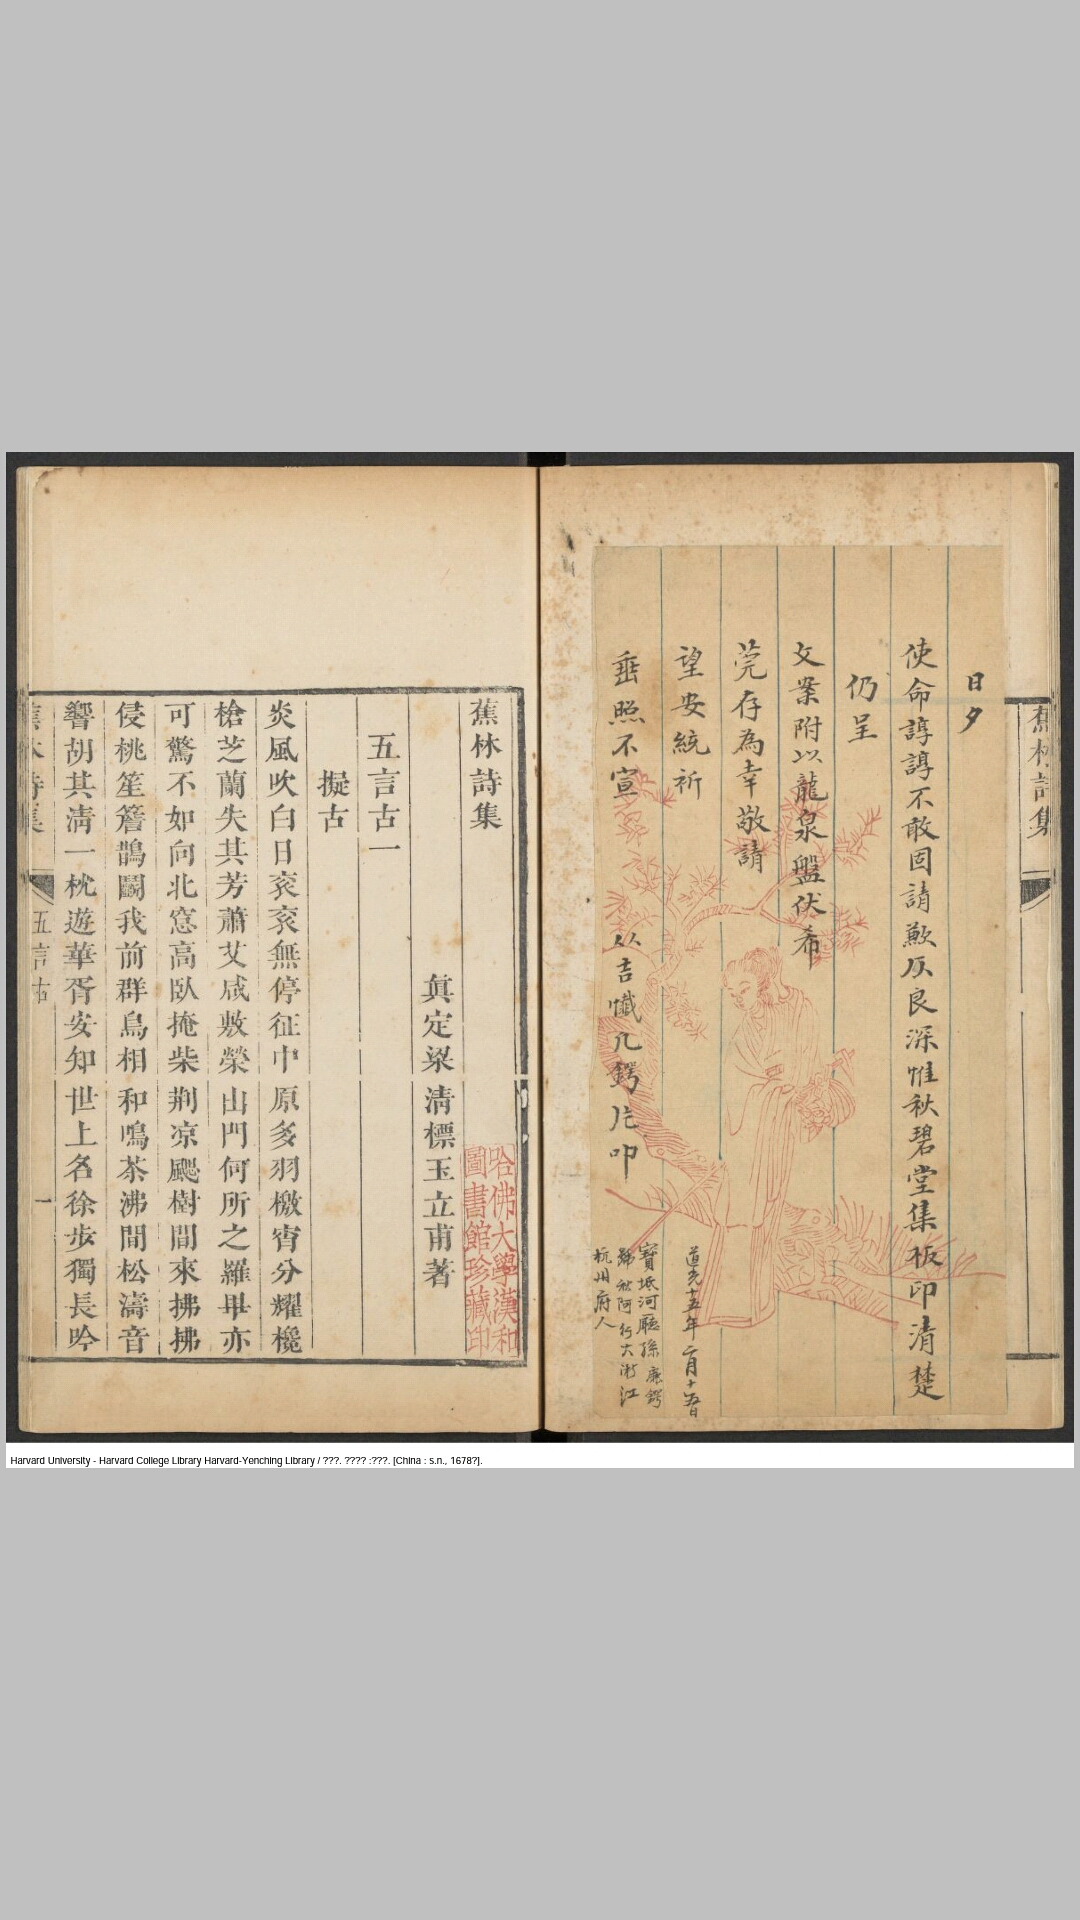 蕉林詩集
日夕
使命諄諄不敢固請歉仄良深惟秋碧堂集板印清楚
仍呈
文案附以龍泉盤伏希
莞存為幸敬請
望安統祈
垂照不宣
道光十五年二月十五日
寶坻河廳孫廉鍔
號秋阿行六浙江
杭州府人
蕉林詩集
眞定梁清標玉立甫著
五言古一
擬古
炎風吹白日袞袞無停征中原多羽檄宵分耀欃
槍芝蘭失其芳蕭艾咸敷榮出門何所之羅畢亦
可驚不如向北窓高臥掩柴荆凉颸樹間來拂拂
侵桃笙簷鵲鬭我前群鳥相和鳴茶沸間松濤音
響胡其清一枕遊華胥安知世上名徐步獨長吟
蕉林詩集
五言古
一
哈佛大學漢和
圖書館珍藏印
Harvard University - Harvard College Library Harvard-Yenching Library / ???. ???? :???. [China : s.n., 1678?].